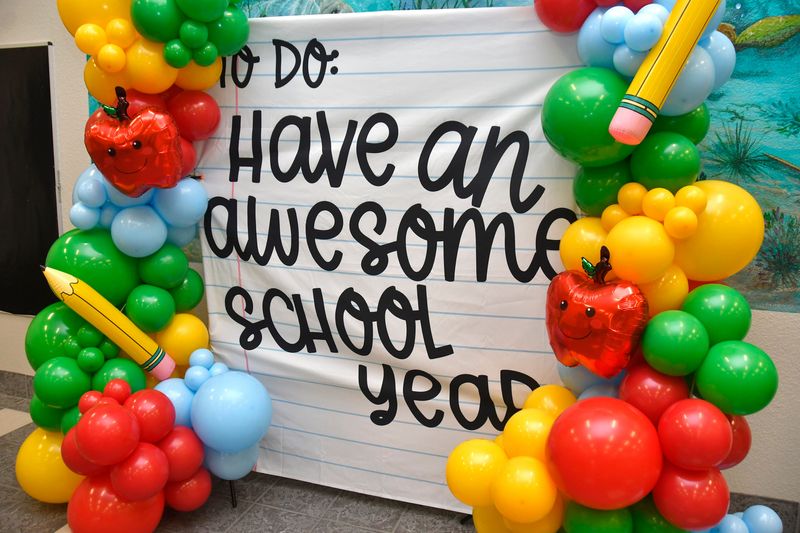 To Do:
Have an
awesome
school
year